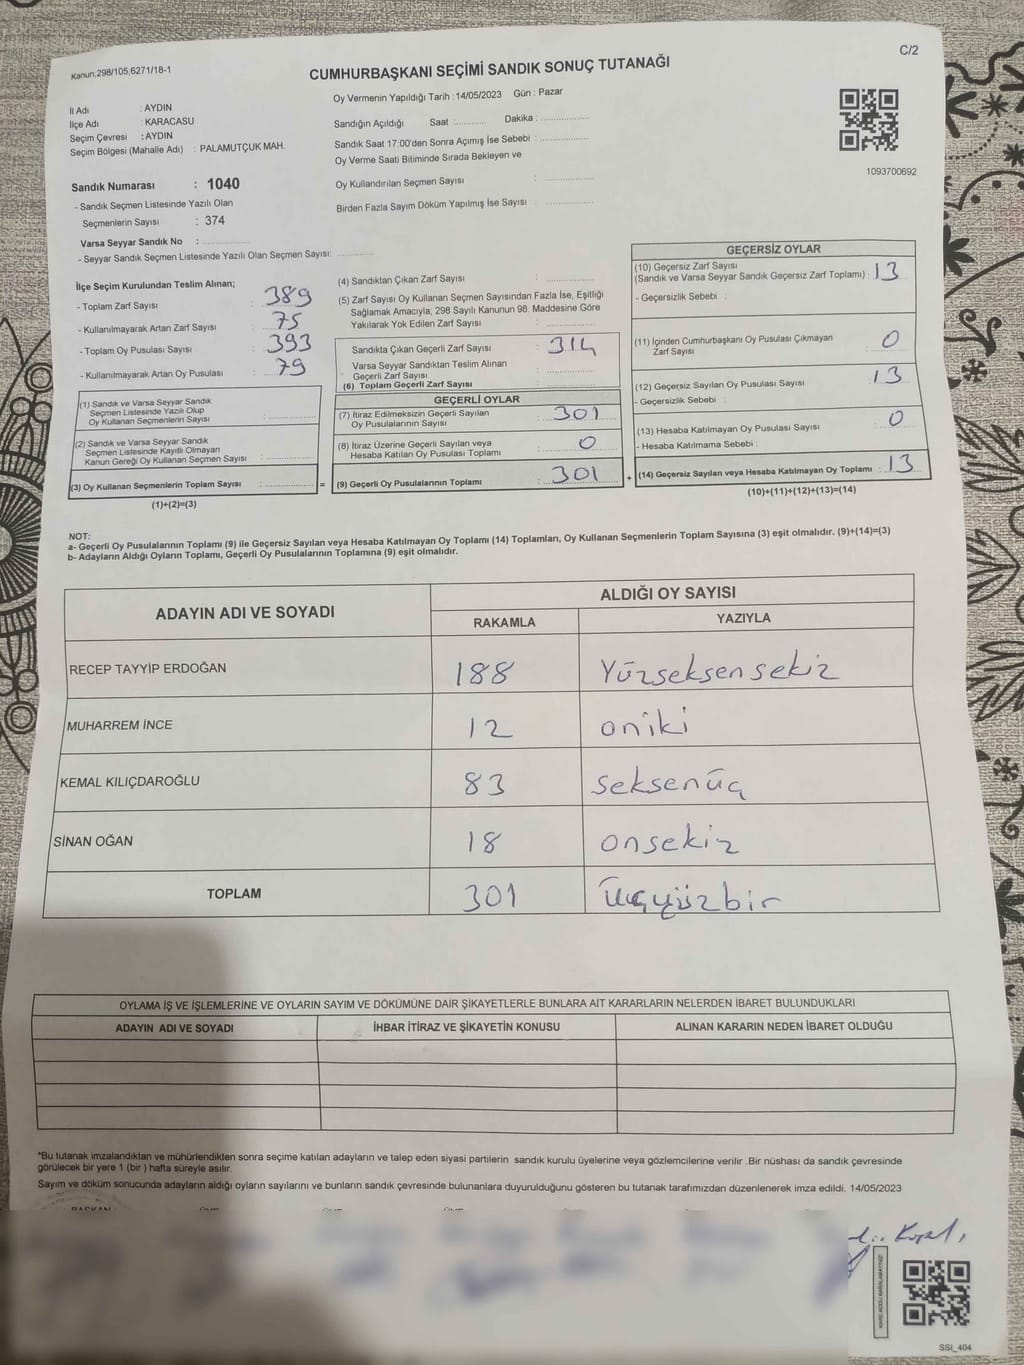 Kanun,298/105,6271/18-1
C/2
CUMHURBAŞKANI SEÇİMİ SANDIK SONUÇ TUTANAĞI
Oy Vermenin Yapıldığı Tarih :14/05/2023 Gün : Pazar
İl Adı : AYDIN
İlçe Adı : KARACASU
Seçim Çevresi : AYDIN
Seçim Bölgesi (Mahalle Adı) : PALAMUTÇUK MAH.
Sandığın Açıldığı Saat :............ Dakika :................
Sandık Saat 17:00'den Sonra Açımış İse Sebebi :................
Oy Verme Saati Bitiminde Sırada Bekleyen ve
Oy Kullandırılan Seçmen Sayısı : ................
Birden Fazla Sayım Döküm Yapılmış İse Sayısı : ................
1093700692
Sandık Numarası : 1040
- Sandık Seçmen Listesinde Yazılı Olan
Seçmenlerin Sayısı : 374
Varsa Seyyar Sandık No : ................
- Seyyar Sandık Seçmen Listesinde Yazılı Olan Seçmen Sayısı: ............
İlçe Seçim Kurulundan Teslim Alınan;
- Toplam Zarf Sayısı : 389
- Kullanılmayarak Artan Zarf Sayısı : 75
- Toplam Oy Pusulası Sayısı : 393
- Kullanılmayarak Artan Oy Pusulası : 79
(1) Sandık ve Varsa Seyyar Sandık
Seçmen Listesinde Yazılı Olup
Oy Kullanan Seçmenlerin Sayısı : ................
(2) Sandık ve Varsa Seyyar Sandık
Seçmen Listesinde Kayıtlı Olmayan
Kanun Gereği Oy Kullanan Seçmen Sayısı : ................
(3) Oy Kullanan Seçmenlerin Toplam Sayısı : ................ =
(1)+(2)=(3)
(4) Sandıktan Çıkan Zarf Sayısı : ................
(5) Zarf Sayısı Oy Kullanan Seçmen Sayısından Fazla İse, Eşitliği
Sağlamak Amacıyla; 298 Sayılı Kanunun 98. Maddesine Göre
Yakılarak Yok Edilen Zarf Sayısı : ................
Sandıkta Çıkan Geçerli Zarf Sayısı : 314
Varsa Seyyar Sandıktan Teslim Alınan
Geçerli Zarf Sayısı : ................
(6) Toplam Geçerli Zarf Sayısı : ................
GEÇERLİ OYLAR
(7) İtiraz Edilmeksizin Geçerli Sayılan
Oy Pusulalarının Sayısı : 301
(8) İtiraz Üzerine Geçerli Sayılan veya
Hesaba Katılan Oy Pusulası Toplamı : 0
(9) Geçerli Oy Pusulalarının Toplamı : 301 +
GEÇERSİZ OYLAR
(10) Geçersiz Zarf Sayısı
(Sandık ve Varsa Seyyar Sandık Geçersiz Zarf Toplamı) : 13
- Geçersizlik Sebebi :
(11) İçinden Cumhurbaşkanı Oy Pusulası Çıkmayan
Zarf Sayısı : 0
(12) Geçersiz Sayılan Oy Pusulası Sayısı : 13
- Geçersizlik Sebebi :
(13) Hesaba Katılmayan Oy Pusulası Sayısı : 0
- Hesaba Katılmama Sebebi :
(14) Geçersiz Sayılan veya Hesaba Katılmayan Oy Toplamı : 13
(10)+(11)+(12)+(13)=(14)
NOT:
a- Geçerli Oy Pusulalarının Toplamı (9) ile Geçersiz Sayılan veya Hesaba Katılmayan Oy Toplamı (14) Toplamları, Oy Kullanan Seçmenlerin Toplam Sayısına (3) eşit olmalıdır. (9)+(14)=(3)
b- Adayların Aldığı Oyların Toplamı, Geçerli Oy Pusulalarının Toplamına (9) eşit olmalıdır.
ADAYIN ADI VE SOYADI
ALDIĞI OY SAYISI
RAKAMLA YAZIYLA
RECEP TAYYİP ERDOĞAN 188 Yüzseksensekiz
MUHARREM İNCE 12 oniki
KEMAL KILIÇDAROĞLU 83 seksenüç
SİNAN OĞAN 18 onsekiz
TOPLAM 301 üçyüzbir
OYLAMA İŞ VE İŞLEMLERİNE VE OYLARIN SAYIM VE DÖKÜMÜNE DAİR ŞİKAYETLERLE BUNLARA AİT KARARLARIN NELERDEN İBARET BULUNDUKLARI
ADAYIN ADI VE SOYADI İHBAR İTİRAZ VE ŞİKAYETİN KONUSU ALINAN KARARIN NEDEN İBARET OLDUĞU
*Bu tutanak imzalandıktan ve mühürlendikten sonra seçime katılan adayların ve talep eden siyasi partilerin sandık kurulu üyelerine veya gözlemcilerine verilir .Bir nüshası da sandık çevresinde
görülecek bir yere 1 (bir ) hafta süreyle asılır.
Sayım ve döküm sonucunda adayların aldığı oyların sayılarını ve bunların sandık çevresinde bulunanlara duyurulduğunu gösteren bu tutanak tarafımızdan düzenlenerek imza edildi. 14/05/2023
BAŞKAN
SSI_404